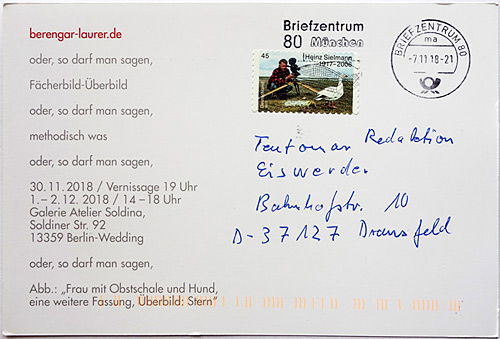 berengar-laurer.de
oder, so darf man sagen,
Fächerbild-Überbild
oder, so darf man sagen,
methodisch was
oder, so darf man sagen,
30.11.2018 / Vernissage 19 Uhr
1.– 2.12. 2018 / 14 – 18 Uhr
Galerie Atelier Soldina,
Soldiner Str. 92
13359 Berlin-Wedding
oder, so darf man sagen,
Abb.: „Frau mit Obstschale und Hund,
eine weitere Fassung, Überbild: Stern"
Briefzentrum
80 München
45
Heinz Sielmann
1917-2006
BRIEFZENTRUM 80
ma
-7.11.18-21
Redaktion
Eiswerder
Bahnhofstr. 10
D-37127 Dransfeld